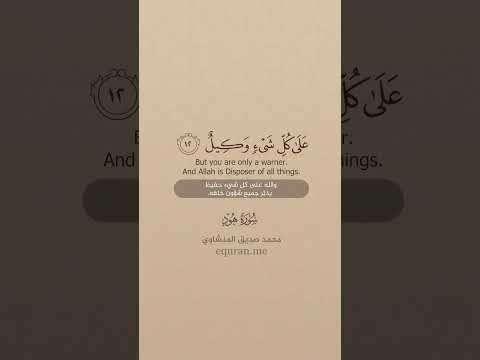 عَلَىٰ كُلِّ شَىْءٍ وَكِيلٌ ١٢
But you are only a warner.
And Allah is Disposer of all things.
والله على كل شيء حفيظ
يدبّر جميع شؤون خلقه.
سُورَةُ هُودٍ
محمد صديق المنشاوي
equran.me